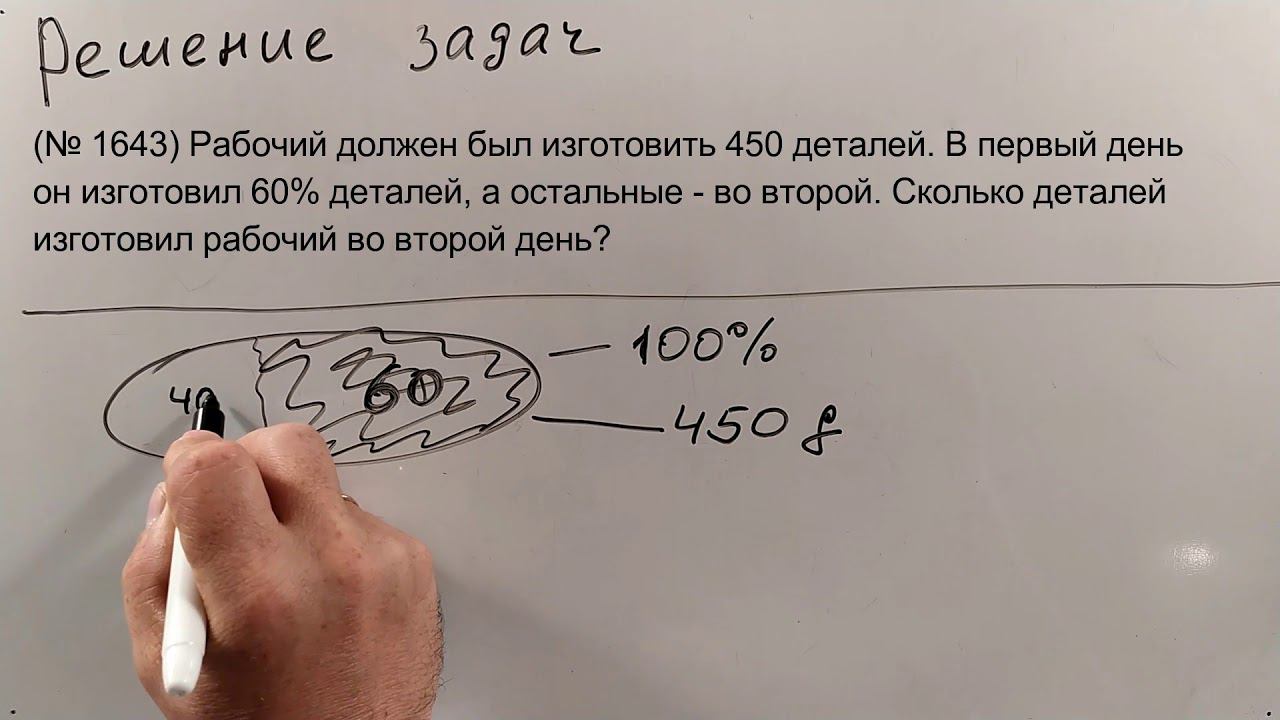 Решение задач
(№ 1643) Рабочий должен был изготовить 450 деталей. В первый день
он изготовил 60% деталей, а остальные - во второй. Сколько деталей
изготовил рабочий во второй день?
100%
40
60
450 д